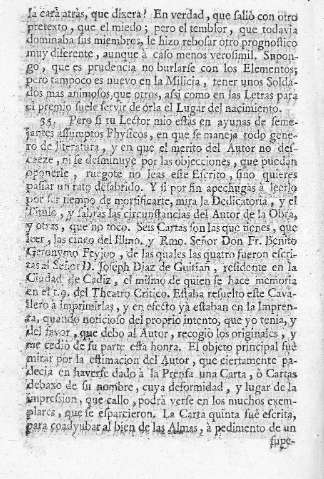 la cara atràs, que dixera? En verdad, que saliò con otro
pretexto, que el miedo; pero el temblor, que todavia
dominaba sus miembros, le hizo rebosar otro prognostico
muy diferente, aunque à caso menos verosimil. Supon-
go, que es prudencia no burlarse con los Elementos;
pero tampoco es nuevo en la Milicia, tener unos Solda-
dos mas animosos que otros, asi como en las Letras para
el premio suele servir de òrla el Lugar del nacimiento.
35. Pero si tu Lector mio estàs en ayunas de seme-
jantes assumptos Physicos, en que se maneja todo gene-
ro de literatura, y en que el merito del Autor no des-
caeze, ni se desminuye por las objecciones, que puedan
oponerle, ruegote no leas este Escrito, sino quieres
passar un rato desabrido. Y si por fin apechugas à leerlo
por ser tiempo de mortificarte, mira la Dedicatoria, y el
Titulo, y sabràs las circunstancias del Autor de la Obra,
y otras, que no toco. Seis Cartas son las que tienes, que
leer, las cinco del Illmo. y Rmo. Señor Don Fr. Benito
Geronymo Feyjoo, de las quales las quatro fueron escri-
tas al Señor D. Joseph Diaz de Guitian, residente en la
Ciudad de Cadiz, el mismo de quien se hace memoria
en el t.9. del Theatro Critico. Estaba resuelto este Cava-
llero à imprimirlas, y en efecto yà estaban en la Impren-
ta, quando noticioso del proprio intento, que yo tenia, y
del favor, que debo al Autor, recogiò los originales, y
me cediò de su parte esta honra. El objeto principal fuè
mirar por la estimacion del Autor, que ciertamente pa-
decia en haverse dado à la Prensa una Carta, ò Cartas
debaxo de su nombre, cuya deformidad, y lugar de la
impression, que callo, podrà verse en los muchos exem-
plares, que se esparcieron. La Carta quinta fuè escrita,
para coadyubar al bien de las Almas, à pedimento de un
supe-